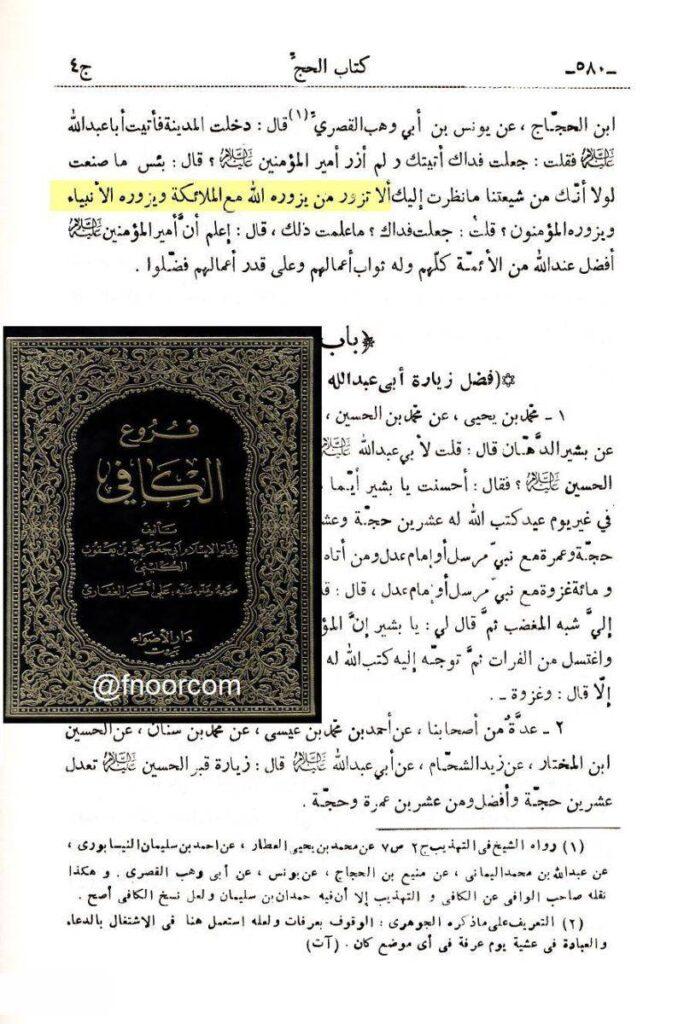 -٥٨٠- كتاب الحجّ ج٤
ابن الحجّاج ، عن يونس بن أبي وهب القصريّ (١) قال : دخلت المدينة فأتيت أبا عبدالله
عليه السلام فقلت : جعلت فداك أتيتك و لم أزر أمير المؤمنين عليه السلام ؟ قال : بئس ما صنعت
لولا أنّك من شيعتنا ما نظرت إليك ألا تزور من يزوره الله مع الملائكة ويزوره الأنبياء
ويزوره المؤمنون ؟ قلت : جعلت فداك ؟ ما علمت ذلك ، قال : إعلم أنَّ أمير المؤمنين عليه السلام
أفضل عندالله من الأئمّة كلّهم وله ثواب أعمالهم وعلى قدر أعمالهم فضّلوا .
﴿باب
(فضل زيارة أبي عبدالله
١ - محمّد بن يحيى ، عن محمّد بن الحسين ،
عن بشير الدهّان قال : قلت لأبي عبدالله عليه السلام
الحسين عليه السلام ؟ فقال : أحسنت يا بشير أيّما
في غير يوم عيد كتب الله له عشرين حجّة وعش
حجّة وعمرة مع نبيّ مرسل أو إمام عدل ومن أتاه
و مائة غزوة مع نبيّ مرسل أو إمام عدل ، قال :
إليَّ شبه المغضب ثمَّ قال لي : يا بشير إنَّ المؤ
واغتسل من الفرات ثمَّ توجّه إليه كتب الله له
إلّا قال : وغزوة - .
فروع
الكافي
تأليف
ثقة الإسلام أبي جعفر محمد بن يعقوب
الكليني
صححه وعلق عليه : علي أكبر الغفاري
دار الأضواء
بيروت
@fnoorcom
٢ - عدَّةٌ من أصحابنا ، عن أحمد بن محمّد بن عيسى ، عن محمّد بن سنان ، عن الحسين
ابن المختار ، عن زيد الشحّام ، عن أبي عبدالله عليه السلام قال : زيارة قبر الحسين عليه السلام تعدل
عشرين حجّة وأفضل ومن عشرين عمرة وحجّة .
(١) رواه الشيخ فى التهذيب ج ٢ ص ٧ عن محمد بن يحيى العطار ، عن احمد بن سليمان النيسابورى ،
عن عبدالله بن محمد اليمانى ، عن منيع بن الحجاج ، عن يونس ، عن أبى وهب القصرى . و هكذا
نقله صاحب الوافى عن الكافى و التهذيب إلا أن فيه حمدان بن سليمان ولعل نسخ الكافى أصح .
(٢) التعريف على ما ذكره الجوهرى : الوقوف بعرفات ولعله استعمل هنا فى الاشتغال بالدعاء
والعبادة فى عشية يوم عرفة فى أى موضع كان . (آت)